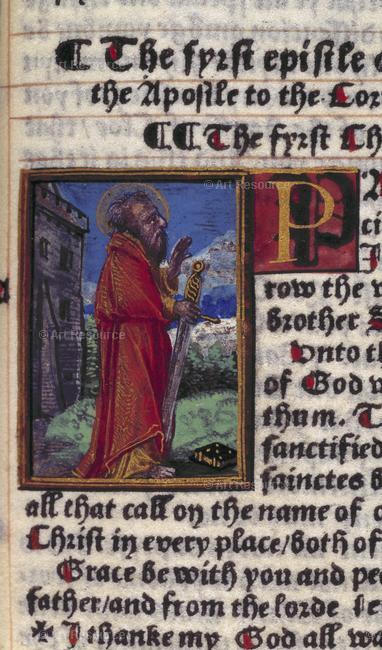 ¶ The fyrst epistle
the Apostle to the Cor
¶¶ The fyrst Ch
© Art Resource
P
row the
brother
© Art Resource
vnto th
of God
thum.
sanctified
© Art Resource
sainctes
all that call on the name of
Christ in every place/both of
Grace be with you and pe
father/and from the lorde Ie
I thanke my God all wa